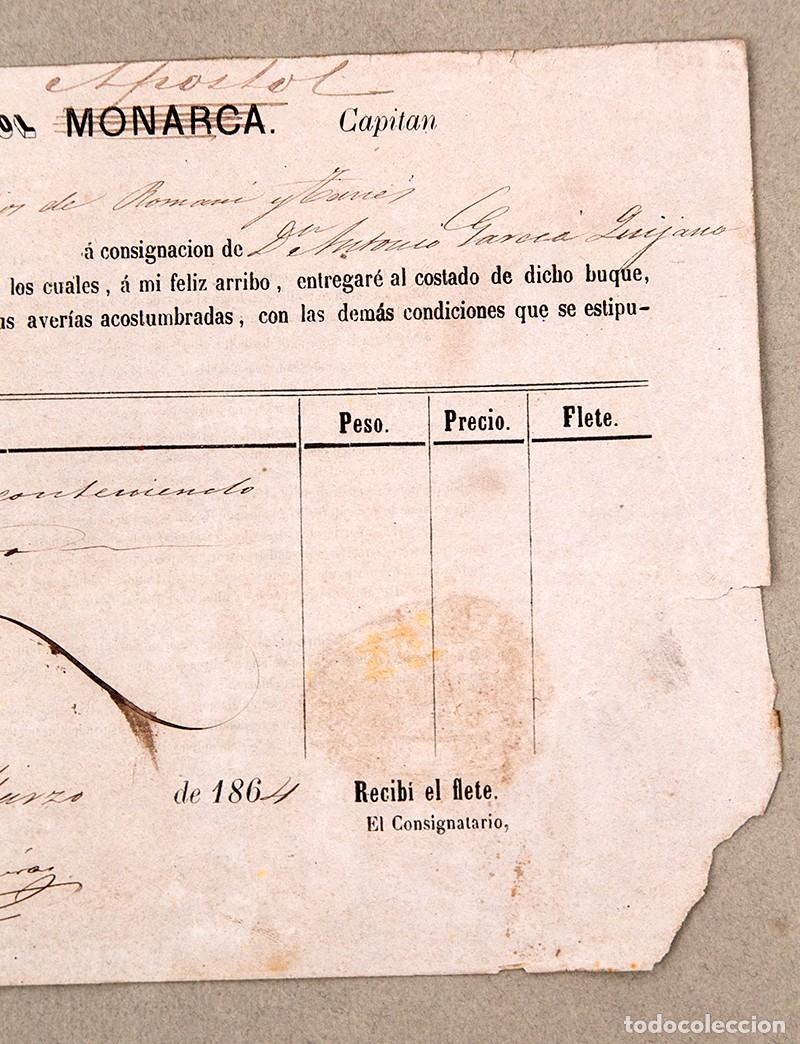 Apostol
OL MONARCA. Capitan
de Romaní y
á consignacion de Dn Antonio García Quijano
los cuales, á mi feliz arribo, entregaré al costado de dicho buque,
us averías acostumbradas, con las demás condiciones que se estipu-
Peso. Precio. Flete.
conteniendo
arzo de 1864 Recibí el flete.
El Consignatario,
todocoleccion